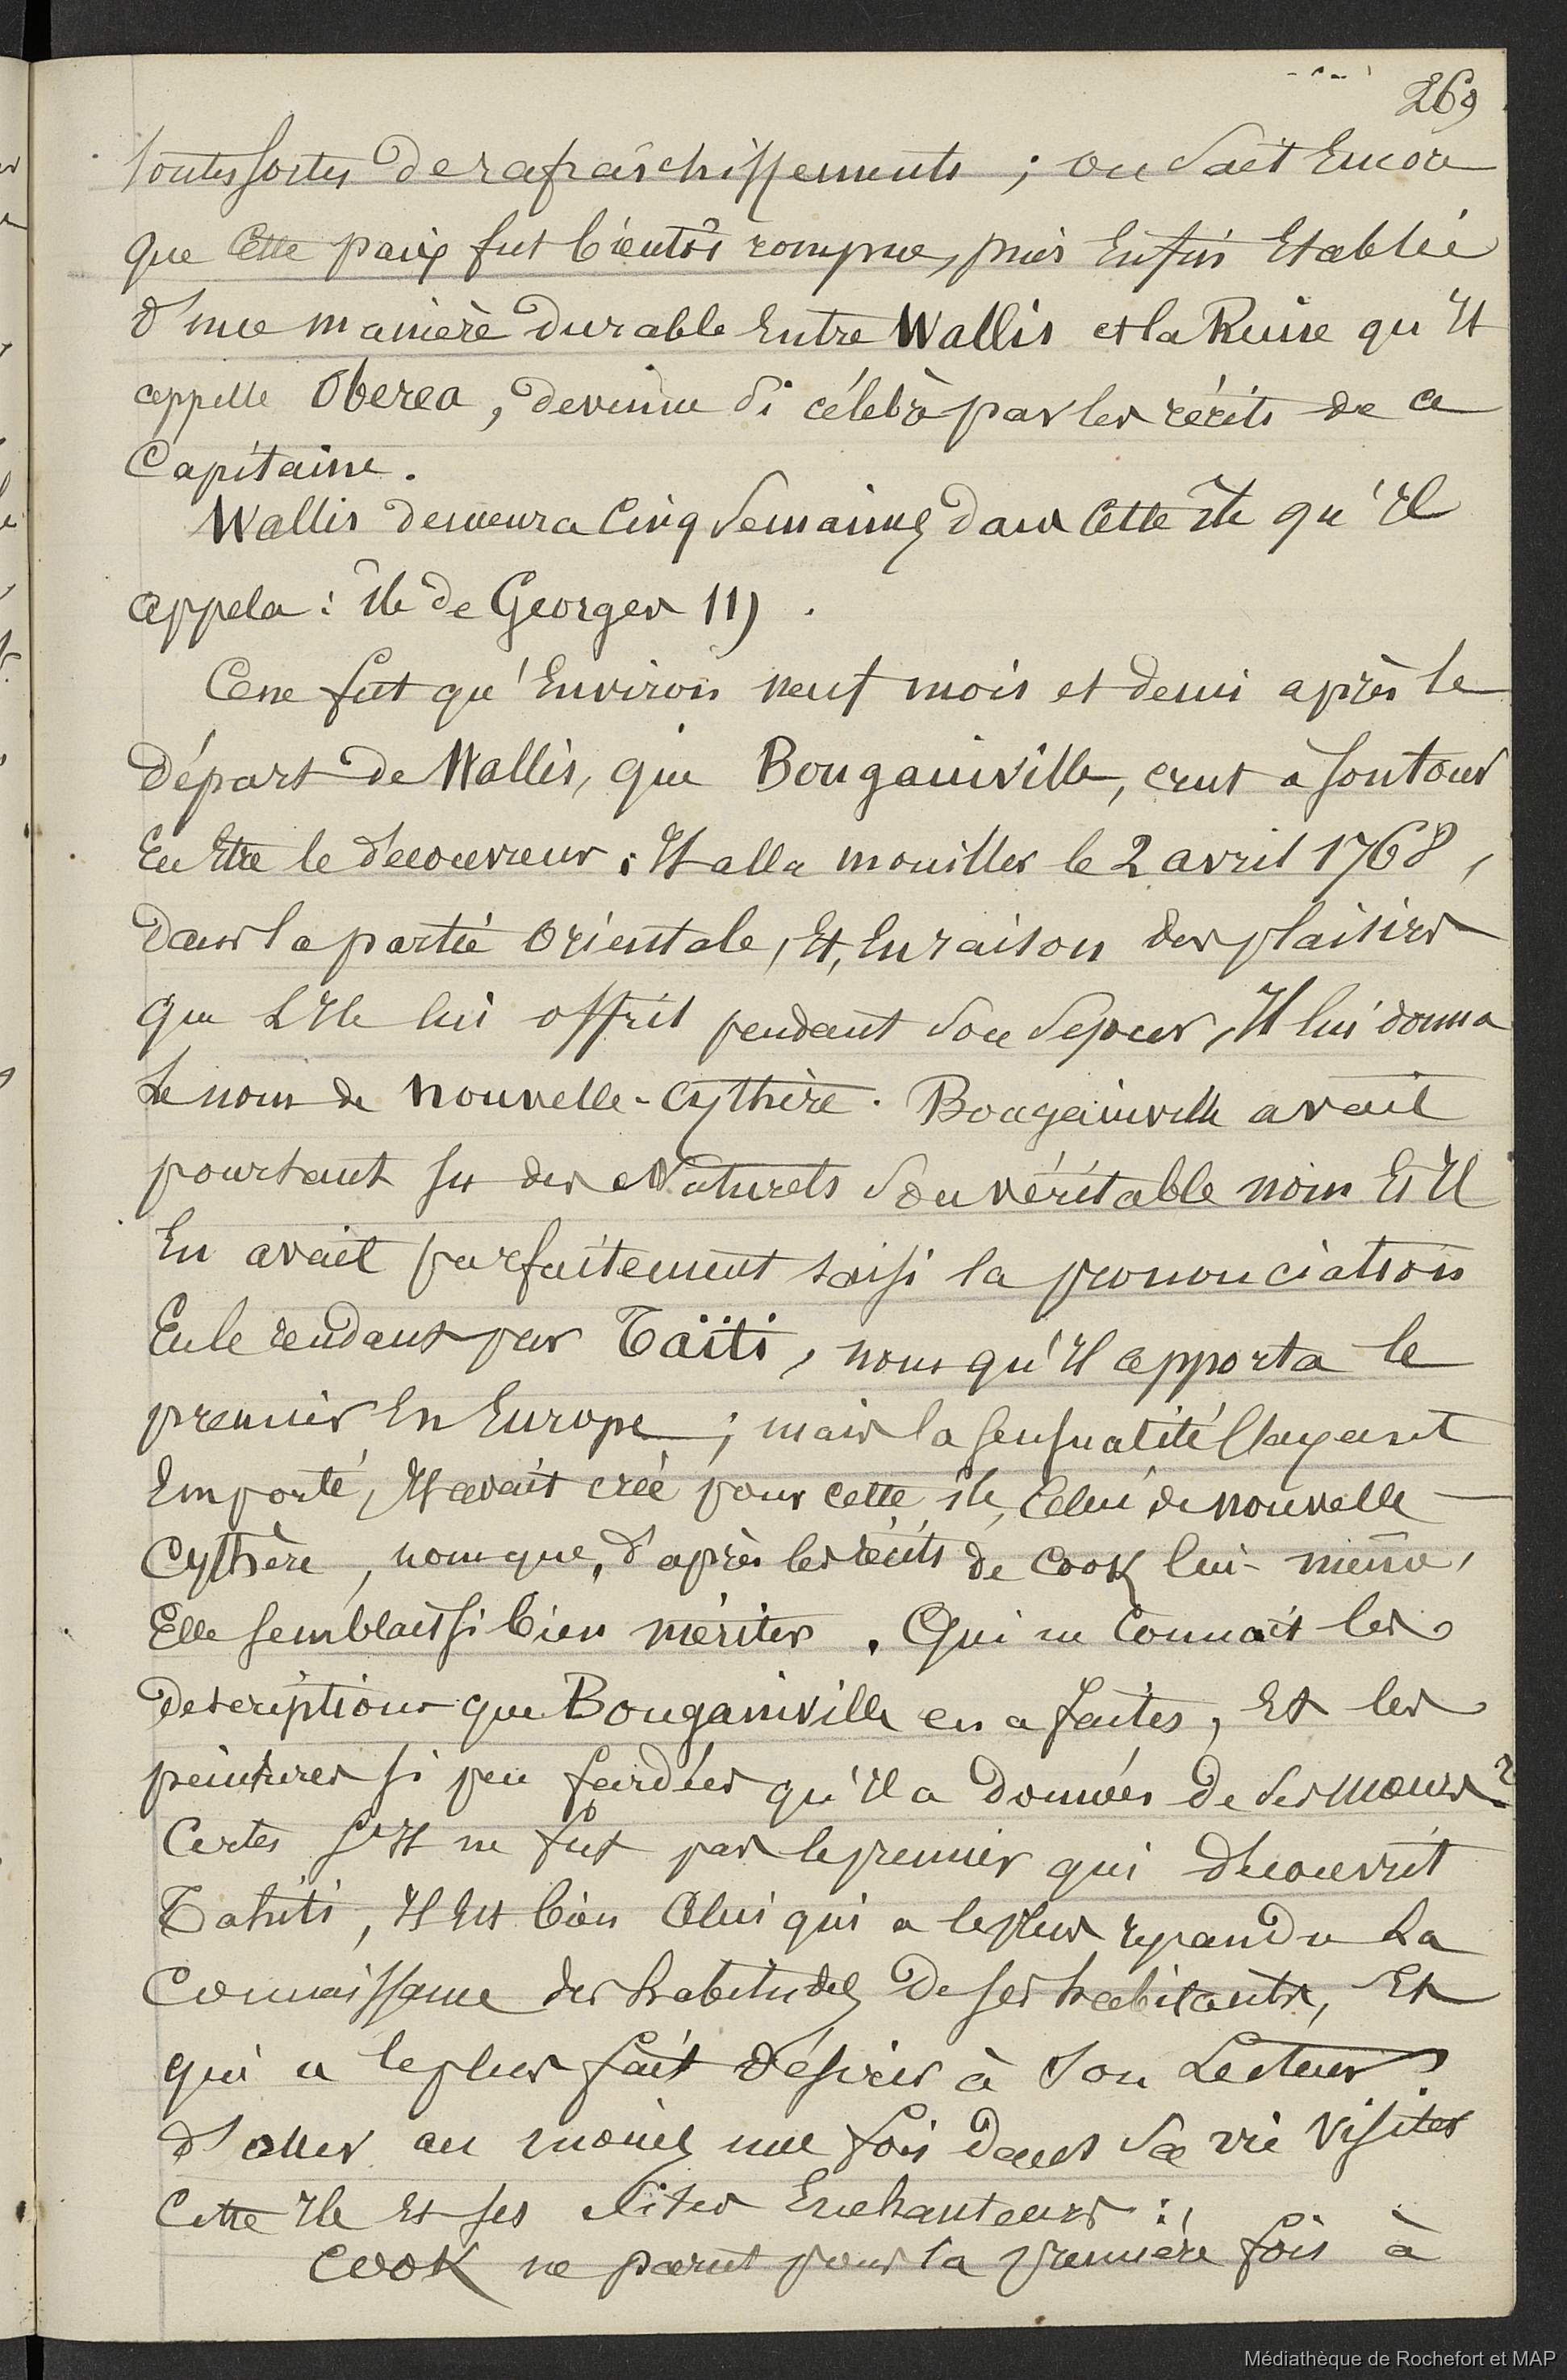 269
toutes sortes de rafraîschissements ; on sait Encore
que Cette paix fut bientôt rompue, puis Enfin Etablie
d'une manière durable Entre Wallis et la Reine qu'Il
appelle Oberea, devenue si célèbre par les récits de ce
Capitaine.
Wallis demeura Cinq semaines dans Cette île qu'Il
appela : île de Georges III.
Ce ne fut qu'Environ neuf mois et demi après le
départ de Wallis, que Bougainville, crut à son tour
En Etre le découvreur ; Il alla mouiller le 2 avril 1768,
dans la partie Orientale, Et, En raison des plaisirs
que L'Ile lui offrit pendant son séjour, Il lui donna
Le nom de Nouvelle-Cythère. Bougainville avait
pourtant su des Naturels son véritable nom Et Il
En avait parfaitement saisi la prononciation
En le rendant par Taïti, nom qu'Il apporta le
premier En Europe ; mais la sensualité l'ayant
Emporté, Il avait créé pour cette île, Celui de nouvelle-
Cythère, nom que, d'après les récits de Cook lui-même,
Elle semblait si bien mériter. Qui ne Connaît les
descriptions que Bougainville en a faites, Et les
peintures si peu fardées qu'Il a données de ses mœurs ?
Certes s'Il ne fut pas le premier qui découvrit
Tahiti, Il Est bien Celui qui a le plus répandu La
Connaissance des habitudes de ses habitants, Et
qui a le plus fait désirer à son Lecteur
d'aller au moins une fois dans sa vie visiter
Cette Ile Et ses sites Enchanteurs :
Cook ne parut pour la première fois à
Médiathèque de Rochefort et MAP